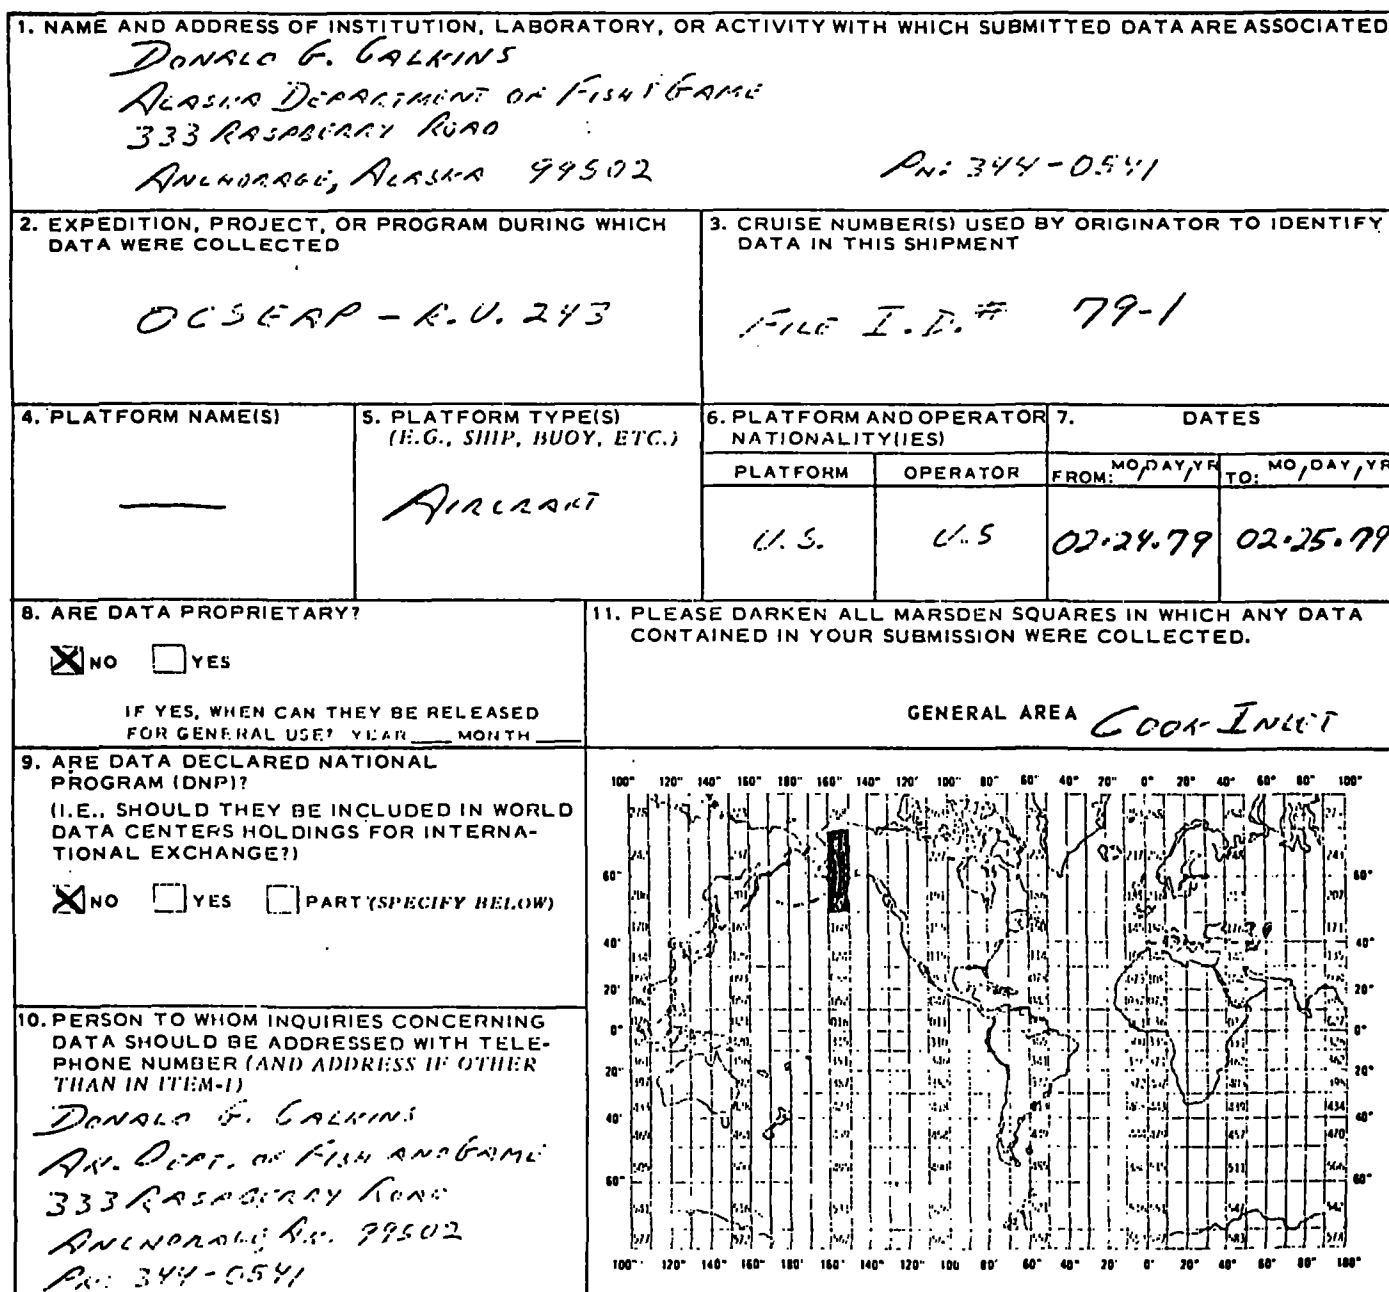 1. NAME AND ADDRESS OF INSTITUTION, LABORATORY, OR ACTIVITY WITH WHICH SUBMITTED DATA ARE ASSOCIATED
DONALD G. CALKINS
ALASKA DEPARTMENT OF FISH & GAME
333 RASPBERRY ROAD
ANCHORAGE, ALASKA 99502 PH: 344-0541
2. EXPEDITION, PROJECT, OR PROGRAM DURING WHICH
DATA WERE COLLECTED
OCSEAP - R.U. 243
3. CRUISE NUMBER(S) USED BY ORIGINATOR TO IDENTIFY
DATA IN THIS SHIPMENT
FILE I.D.# 79-1
4. PLATFORM NAME(S)
5. PLATFORM TYPE(S)
(E.G., SHIP, BUOY, ETC.)
AIRCRAFT
6. PLATFORM AND OPERATOR
NATIONALITY(IES)
PLATFORM OPERATOR
U.S. U.S
7. DATES
FROM: MO/DAY/YR TO: MO/DAY/YR
02.24.79 02.25.79
8. ARE DATA PROPRIETARY?
NO YES
IF YES, WHEN CAN THEY BE RELEASED
FOR GENERAL USE? YEAR ___ MONTH ___
9. ARE DATA DECLARED NATIONAL
PROGRAM (DNP)?
(I.E., SHOULD THEY BE INCLUDED IN WORLD
DATA CENTERS HOLDINGS FOR INTERNA-
TIONAL EXCHANGE?)
NO YES PART (SPECIFY BELOW)
10. PERSON TO WHOM INQUIRIES CONCERNING
DATA SHOULD BE ADDRESSED WITH TELE-
PHONE NUMBER (AND ADDRESS IF OTHER
THAN IN ITEM-1)
DONALD G. CALKINS
AK. DEPT. OF FISH AND GAME
333 RASPBERRY ROAD
ANCHORAGE, AK. 99502
PH: 344-0541
11. PLEASE DARKEN ALL MARSDEN SQUARES IN WHICH ANY DATA
CONTAINED IN YOUR SUBMISSION WERE COLLECTED.
GENERAL AREA COOK INLET
100° 120° 140° 160° 180° 160° 140° 120° 100° 80° 60° 40° 20° 0° 20° 40° 60° 80° 100°
60° 60°
40° 40°
20° 20°
0° 0°
20° 20°
40° 40°
60° 60°
100° 120° 140° 160° 180° 160° 140° 120° 100° 80° 60° 40° 20° 0° 20° 40° 60° 80° 100°